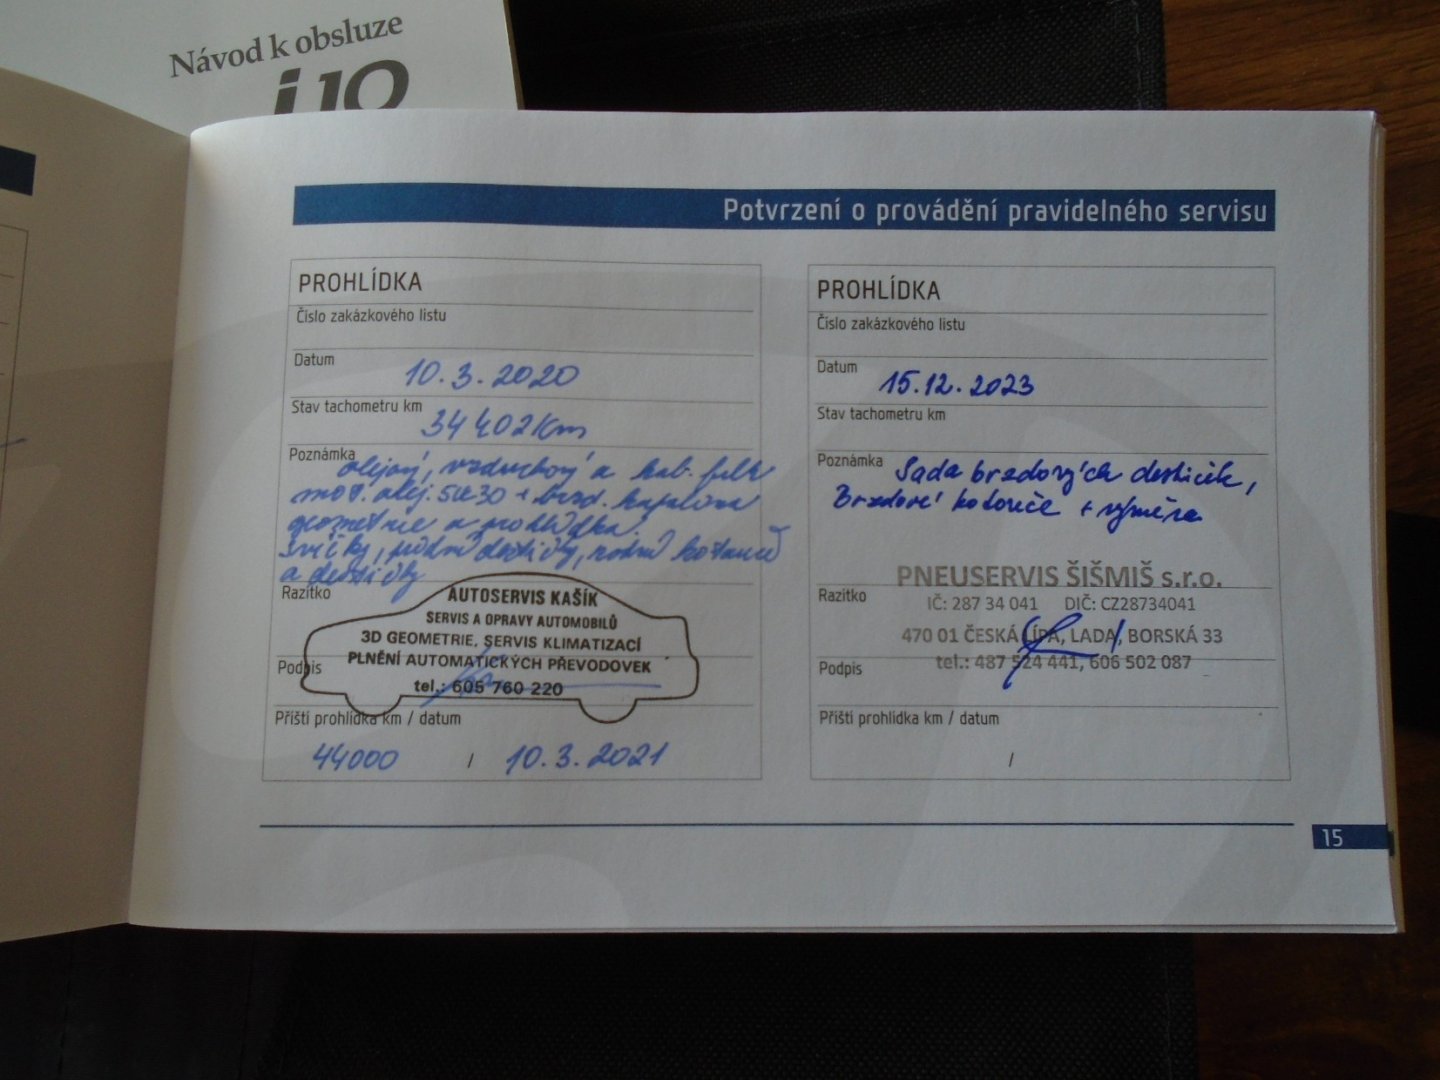 Návod k obsluze
i10
Potvrzení o provádění pravidelného servisu
PROHLÍDKA
Číslo zakázkového listu
Datum 10.3.2020
Stav tachometru km 34402 Km
Poznámka olejový, vzduchový a kab. filtr
mot. olej. 5W30 + brzd. kapalina
geometrie a prohlídka
svíčky, přední destičky, zadní kotouče
a destičky
Razítko
AUTOSERVIS KAŠÍK
SERVIS A OPRAVY AUTOMOBILŮ
3D GEOMETRIE, SERVIS KLIMATIZACÍ
PLNĚNÍ AUTOMATICKÝCH PŘEVODOVEK
Podpis
tel.: 605 760 220
Příští prohlídka km / datum
44000 / 10.3.2021
PROHLÍDKA
Číslo zakázkového listu
Datum 15.12.2023
Stav tachometru km
Poznámka Sada brzdových destiček,
Brzdové kotouče + výměna
PNEUSERVIS ŠIŠMIŠ s.r.o.
Razítko
IČ: 287 34 041 DIČ: CZ28734041
470 01 ČESKÁ LÍPA, LADA, BORSKÁ 33
Podpis
tel.: 487 524 441, 606 502 087
Příští prohlídka km / datum
/
15